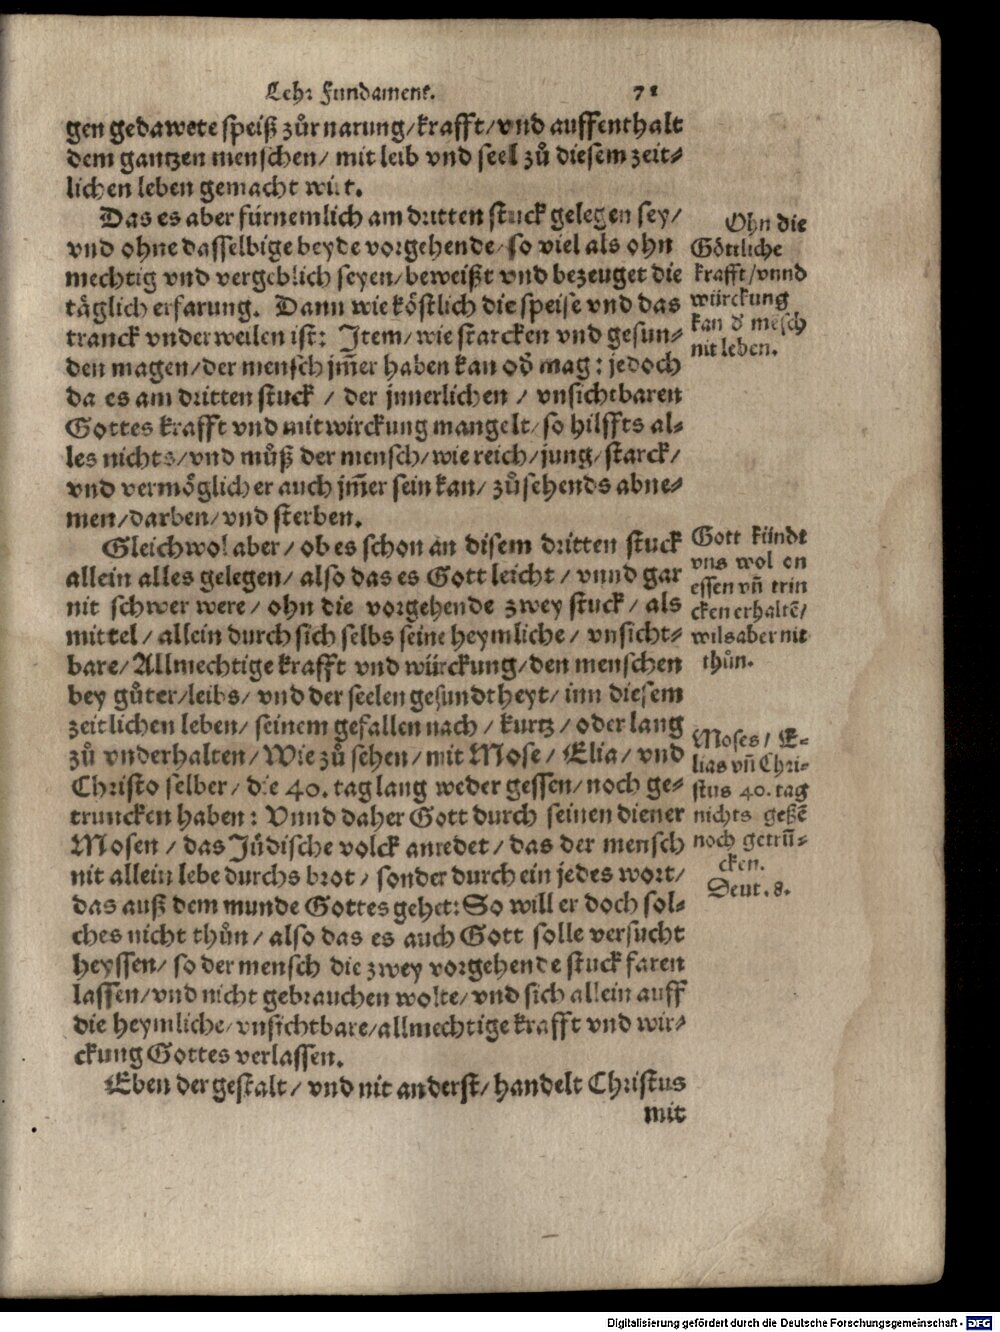 Lehr Fundament. 71
gen gedawete speiß zůr narung/krafft/vnd auffenthalt
dem gantzen menschen/ mit leib vnd seel zů diesem zeit⸗
lichen leben gemacht wirt.
Das es aber fürnemlich am dritten stuck gelegen sey/
vnd ohne dasselbige beyde vorgehende/ so viel als ohn
mechtig vnd vergeblich seyen/beweißt vnd bezeuget die
täglich erfarung. Dann wie köstlich die speise vnd das
tranck vnderweilen ist: Item/ wie starcken vnd gesun⸗
den magen/der mensch jm̃er haben kan od̕ mag: jedoch
da es am dritten stuck / der jnnerlichen / vnsichtbaren
Gottes krafft vnd mitwirckung mangelt/ so hilffts al⸗
les nichts/vnd můß der mensch/wie reich/jung/starck/
vnd vermöglich er auch jm̃er sein kan/ zůsehends abne⸗
men/darben/vnd sterben.
Gleichwol aber/ ob es schon an disem dritten stuck
allein alles gelegen/ also das es Gott leicht / vnnd gar
nit schwer were/ ohn die vorgehende zwey stuck/ als
mittel/ allein durch sich selbs seine heymliche/ vnsicht⸗
bare/Allmechtige krafft vnd würckung/den menschen
bey gůter/leibs/ vnd der seelen gesundtheyt/ inn diesem
zeitlichen leben/ seinem gefallen nach/ kurtz/ oder lang
zů vnderhalten/ Wie zů sehen/ mit Mose/ Elia/ vnd
Christo selber/ die 40. tag lang weder gessen/ noch ge⸗
truncken haben: Vnnd daher Gott durch seinen diener
Mosen / das Jüdische volck anredet/ das der mensch
nit allein lebe durchs brot/ sonder durch ein jedes wort/
das auß dem munde Gottes gehet: So will er doch sol⸗
ches nicht thůn/ also das es auch Gott solle versucht
heyssen/ so der mensch die zwey vorgehende stuck faren
lassen/vnd nicht gebrauchen wolte/ vnd sich allein auff
die heymliche/vnsichtbare/allmechtige krafft vnd wir⸗
ckung Gottes verlassen.
Eben der gestalt/ vnd nit anderst/ handelt Christus
mit
Ohn die
Göttliche
krafft/vnnd
würckung
kan d̕ mẽsch
nit leben.
Gott kündt
vns wol on
essen vñ trin
cken erhaltẽ/
wils aber nit
thůn.
Moses/ E⸗
lias vñ Chri⸗
stus 40. tag
nichts geßẽ
noch getrũ⸗
cken.
Deut. 8.
Digitalisierung gefördert durch die Deutsche Forschungsgemeinschaft - DFG